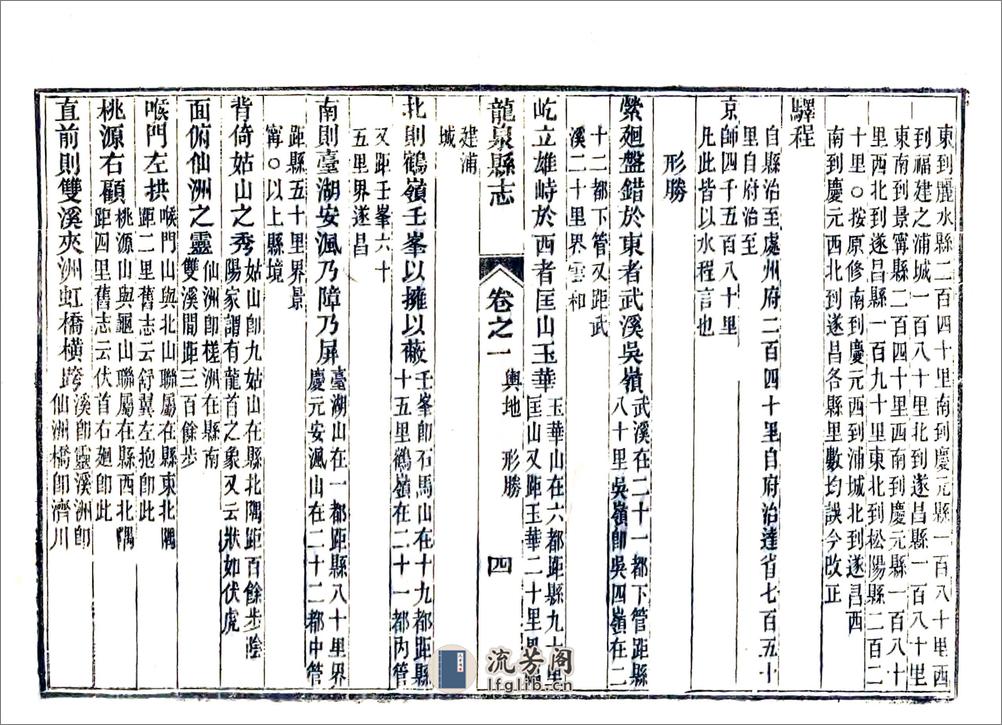 東到麗水縣二百四十里南到慶元縣一百八十里西
到福建之浦城一百八十里北到遂昌縣一百八十里
東南到景寧縣二百四十里西南到慶元縣一百八十
里西北到遂昌縣一百九十里東北到松陽縣二百二
十里○按原修南到慶元西到浦城北到遂昌西
南到慶元西北到遂昌各縣里數均誤今改正
驛程
自縣治至處州府二百四十里自府治達省七百五十
里自府治至
京師四千五百八十里
凡此皆以水程言也
形勝
縈廻盤錯於東者武溪吳嶺
武溪在二十一都下管距縣
八十里吳嶺卽吳四嶺在二
十二都下管又距武
溪二十里界雲和
屹立雄峙於西者匡山玉華
玉華山在六都距縣九十里
匡山又距玉華二十里界
龍泉縣志
卷之一
輿地
形勝
四
建浦
城
北則鶴嶺壬峯以擁以蔽
壬峯卽石馬山在十九都距縣
十五里鶴嶺在二十一都內管
又距壬峯六十
五里界遂昌
南則臺湖安渢乃障乃屏
臺湖山在一都距縣八十里界
慶元安渢山在二十二都中管
距縣五十里界景
甯○以上縣境
背倚姑山之秀
姑山卽九姑山在縣北隅距百餘步陰
陽家謂有龍首之象又云狀如伏虎
面俯仙洲之靈
仙洲卽槎洲在縣南
雙溪間距三百餘步
喉門左拱
喉門山與北山聯屬在縣東北隅
距二里舊志云舒翼左抱卽此
桃源右顧
桃源山與龜山聯屬在縣西北隅
距四里舊志云伏首右廻卽此
直前則雙溪夾洲虹橋橫跨
溪卽靈溪洲卽
仙洲橋卽濟川
流芳阁
lfglib.cn